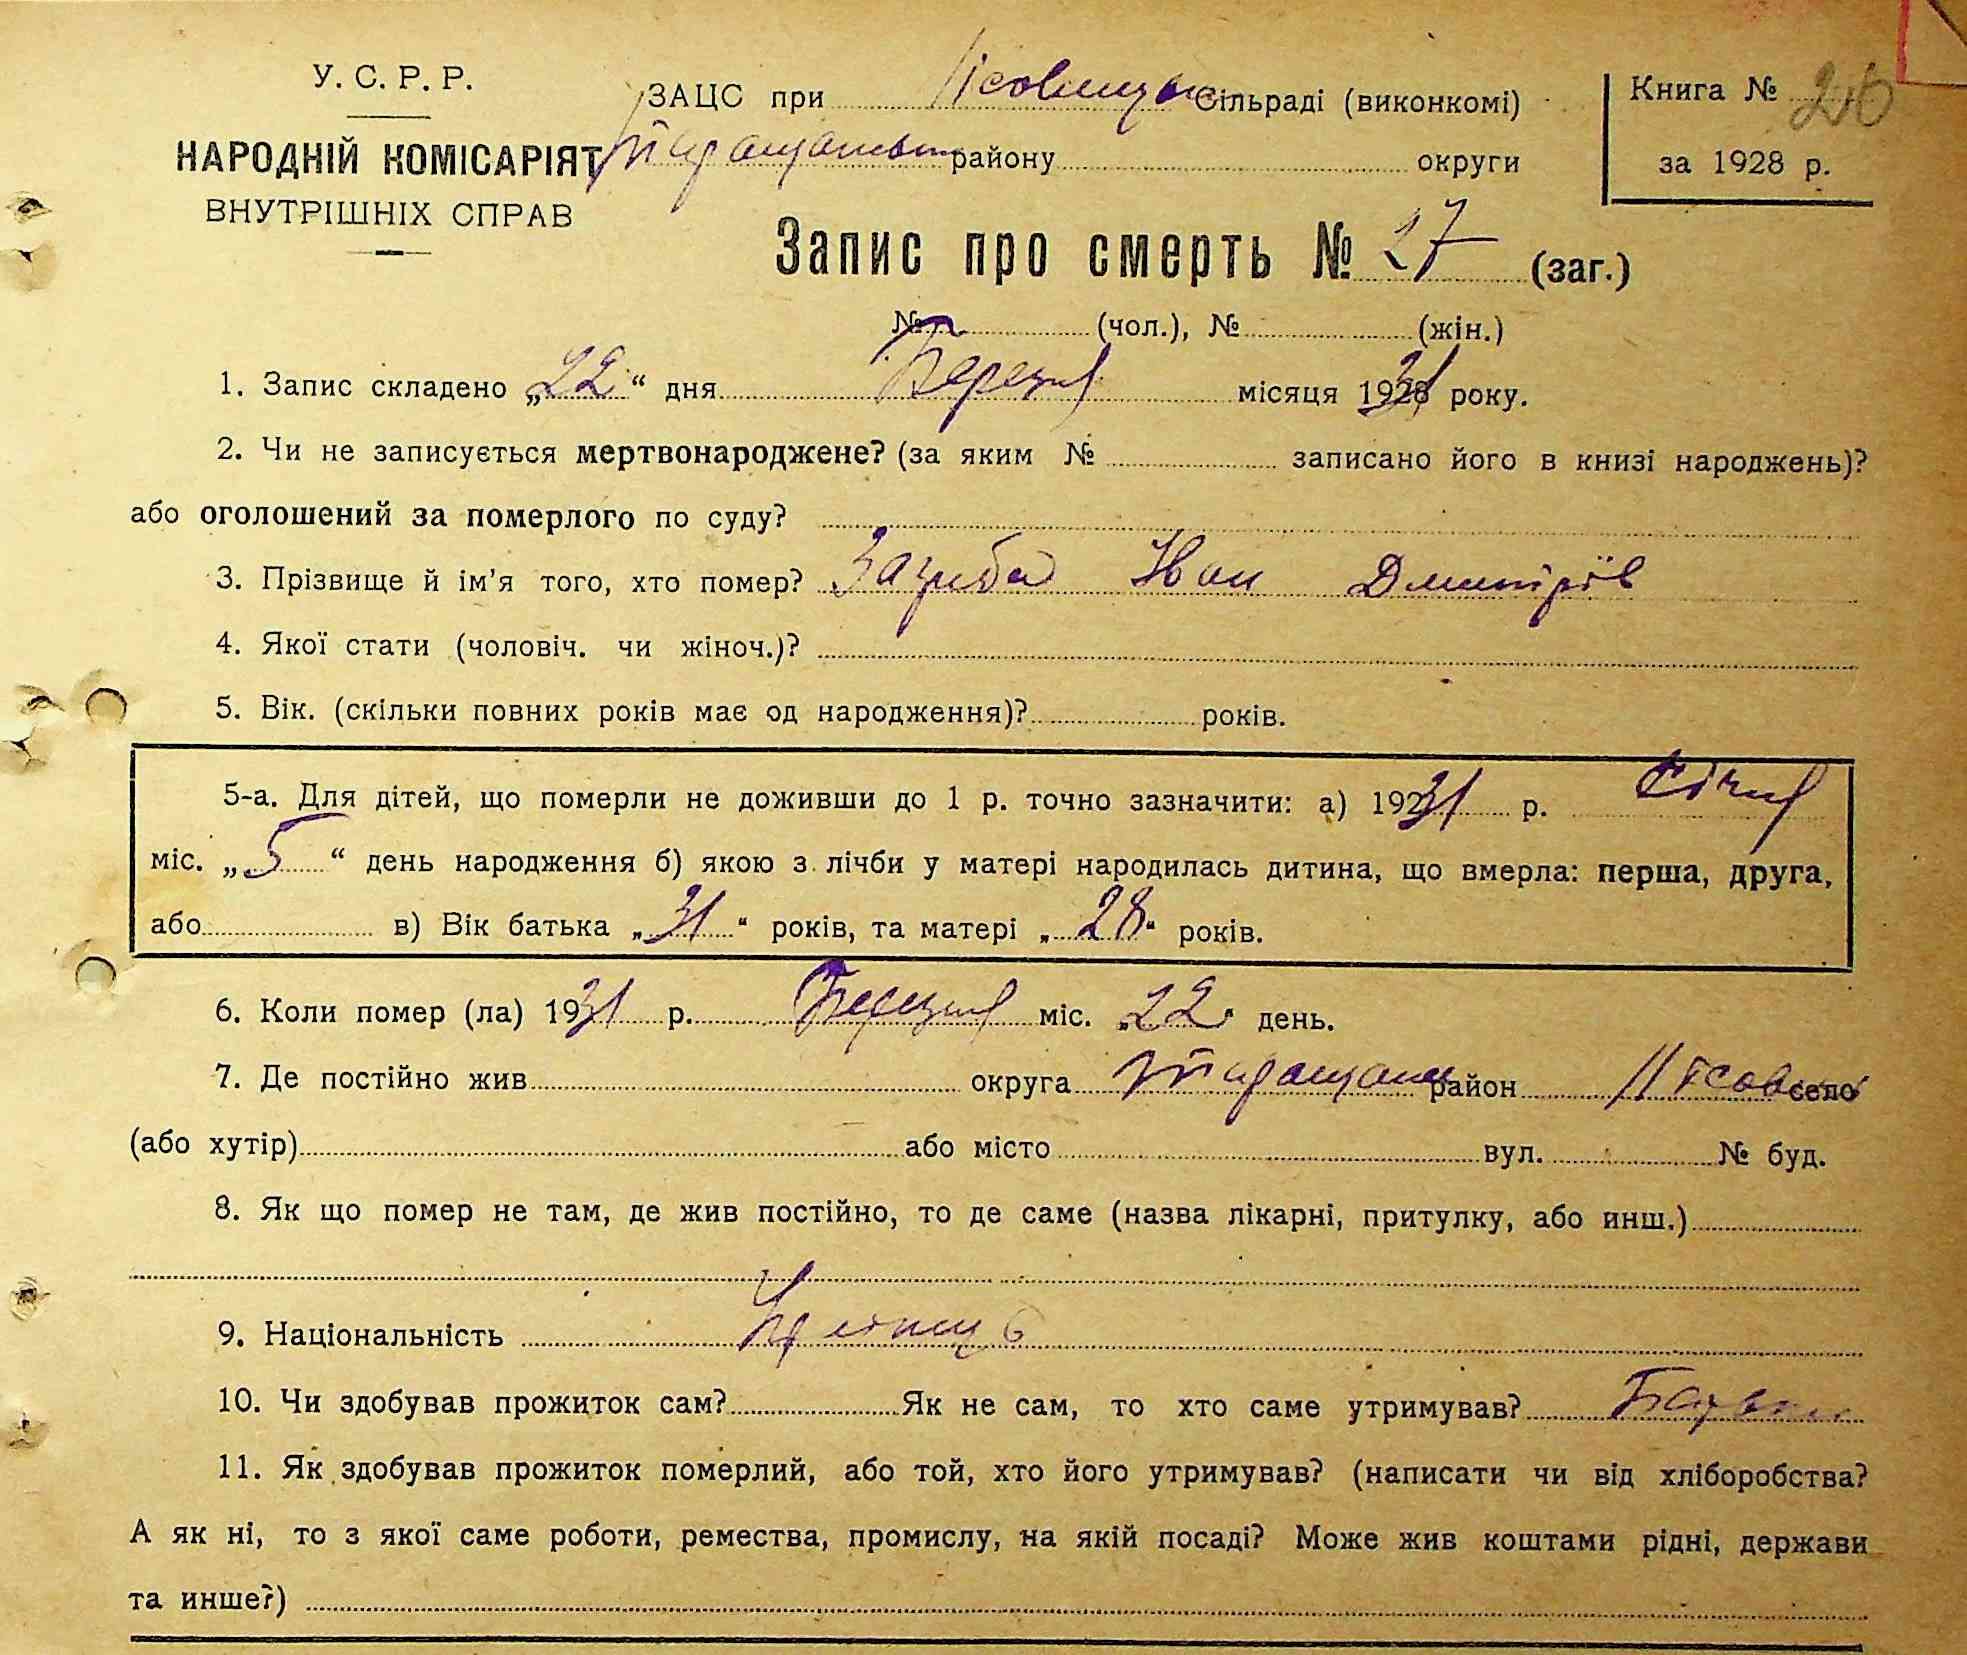 У. С. Р. Р.
НАРОДНІЙ КОМІСАРІЯТ
ВНУТРІШНІХ СПРАВ
ЗАЦС при Лісовицьк Сільраді (виконкомі)
Таращанськ району округи
Книга № 26
за 1928 р.
Запис про смерть № 27 (заг.)
№ (чол.), № (жін.)
1. Запис складено „22“ дня Березня місяця 1931 року.
2. Чи не записується мертвонароджене? (за яким № записано його в книзі народжень)?
або оголошений за померлого по суду?
3. Прізвище й ім’я того, хто помер? Іван Дмитрів
4. Якої стати (чоловіч. чи жіноч.)?
5. Вік. (скільки повних років має од народження)? років.
5-а. Для дітей, що померли не доживши до 1 р. точно зазначити: а) 1931 р. Січня
міс. „5“ день народження б) якою з лічби у матері народилась дитина, що вмерла: перша, друга,
або в) Вік батька „31“ років, та матері „28“ років.
6. Коли помер (ла) 1931 р. Березня міс. „22“ день.
7. Де постійно жив округа Таращанс район Лісович село
(або хутір) або місто вул. № буд.
8. Як що помер не там, де жив постійно, то де саме (назва лікарні, притулку, або инш.)
9. Національність
10. Чи здобував прожиток сам? Як не сам, то хто саме утримував? Батьки
11. Як здобував прожиток померлий, або той, хто його утримував? (написати чи від хліборобства?
А як ні, то з якої саме роботи, ремества, промислу, на якій посаді? Може жив коштами рідні, держави
та инше?)